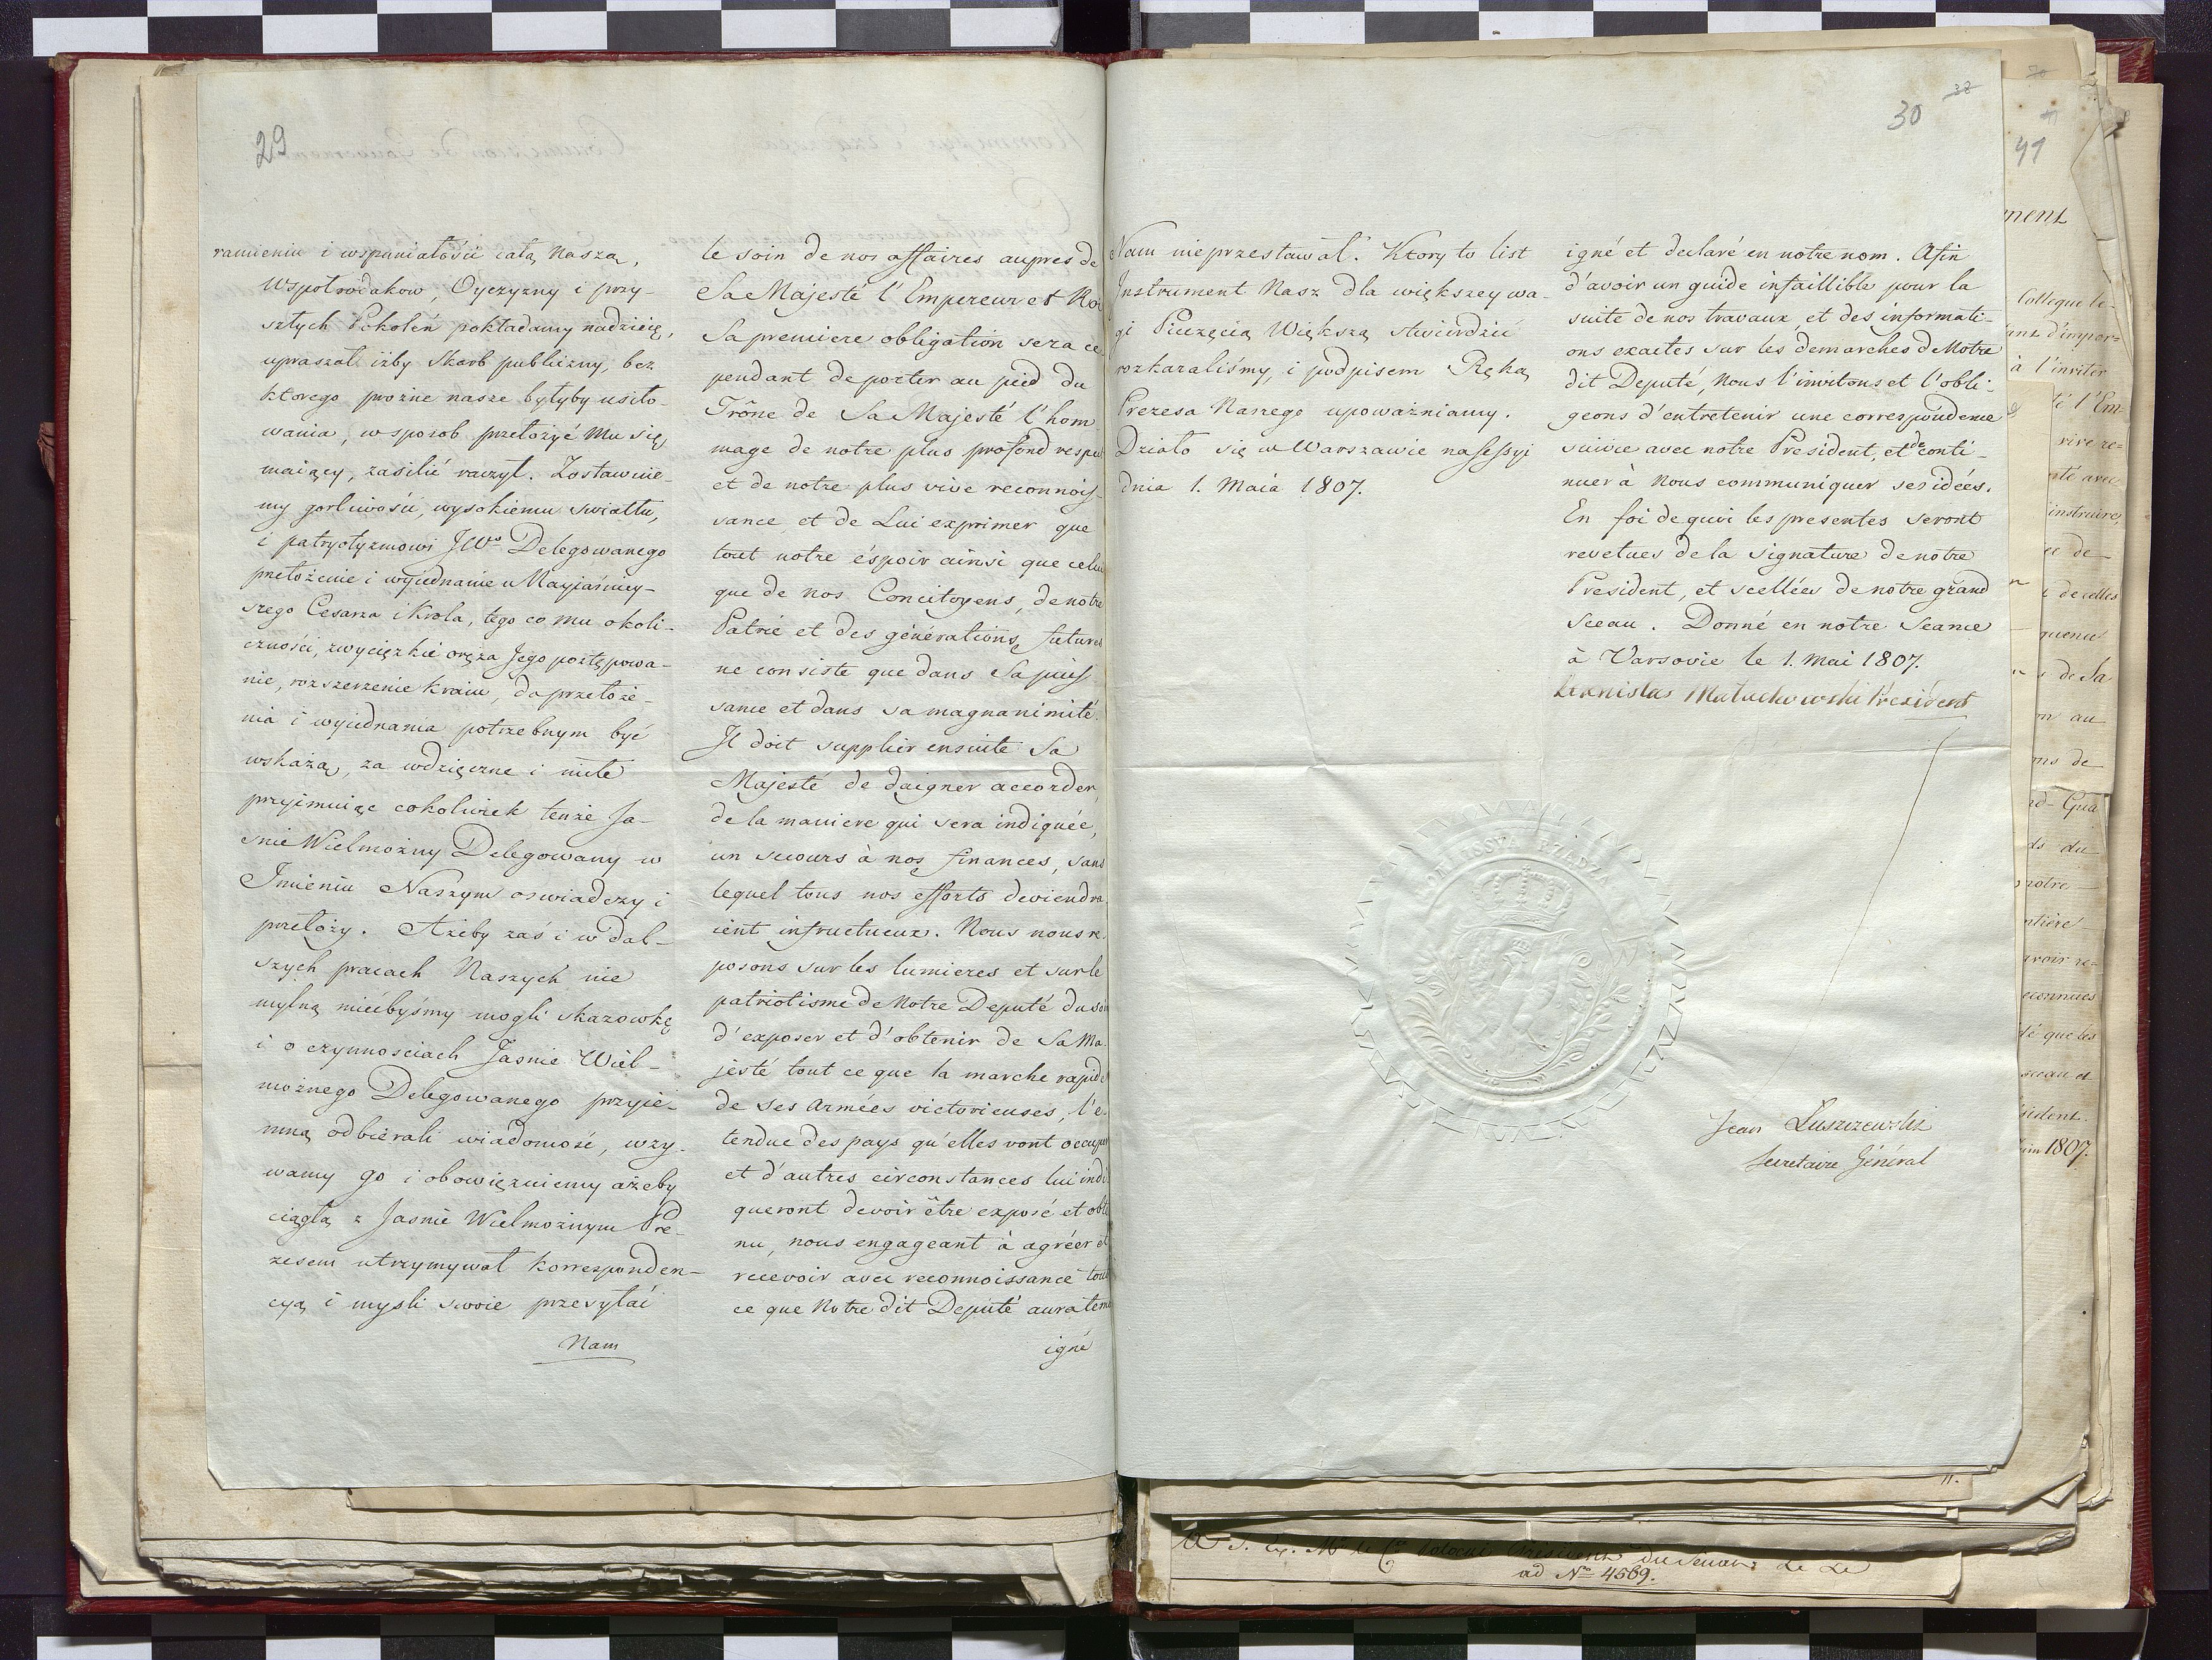 29
ramieniu i wspaniałości całą naszą,
Wspołrodakow, Oyczyzny i przy-
szłych Pokoleń pokładamy nadzieię,
upraszał iżby Skarb publiczny, bez
ktorego prożne nasze byłyby usiło-
wania, w sposob przełożyć Mu się
maiący, zasilić raczył. Zostawuie-
my gorliwości, wysokiemu swiatłu,
i patryotyzmowi JWo Delegowanego
przełożenie i wyiednanie u Nayiaśniey-
szego Cesarza i Krola, tego co mu okoli-
czności, zwycięzkie oręża Jego postępowa-
nie, rozszerzenie kraiu, do przełoże-
nia i wyiednania potrzebnym być
wskażą, za wdzięczne i miłe
przyimuiąc cokolwiek tenże Ja-
snie Wielmożny Delegowany w
Imieniu Naszym oswiadczy i
przełoży. Ażeby zaś i w dal-
szych pracach Naszych nie
mylną miećbyśmy mogli skazowkę
i o czynnosciach Jasnie Wiel-
możnego Delegowanego przyie-
mną odbierali wiadomość, wzy-
wamy go i obowięzuiemy ażeby
ciągłą z Jasnie Wielmożnym Pre-
zesem utrzymywał korresponden-
cyą i mysli swoie przesyłać
Nam
le soin de nos affaires aupres de
Sa Majesté l'Empereur et Roi
Sa premiere obligation sera ce
pendant de porter au pied du
Trône de Sa Majesté l'hom
mage de notre plus profond respe
et de notre plus vive reconnois-
sance et de Lui exprimer que
tout notre éspoir ainsi que celui
que de nos Concitoyens, de notre
Patrie et des générations futures
ne consiste que dans Sa puis
sance et dans sa magnanimité.
Il doit supplier ensuite Sa
Majesté de daigner accorder,
de la maniere qui sera indiquée,
un secours à nos finances, sans
lequel tous nos efforts deviendra
ient infructueux. Nous nous re
posons sur les lumieres et sur le
patriotisme de Notre Deputé du soin
d'exposer et d'obtenir de Sa Ma
jesté tout ce que la marche rapide
de ses Armées victorieuses, l'e
tendue des pays qu'elles vont occuper
et d'autres circonstances lui indi
queront devoir être exposé et obte
nu, nous engageant à agréer et
recevoir avec reconnoissance tout
ce que Notre dit Deputé aura temo
igné
30 38
Nam nieprzestawał. Ktory to list
Instrument Nasz dla większey wa-
gi Pieczęcią Większą stwierdzić
rozkazaliśmy, i podpisem Ręką
Prezesa Naszego upoważniamy.
Działo się w Warszawie na Sessyi
dnia 1. Maia 1807.
igné et declaré en notre nom. Afin
d'avoir un guide infaillible pour la
suite de nos travaux et des informati-
ons exactes sur les demarches de Notre
dit Deputé, Nous l'invitons et l'obli-
geons d'entretenir une correspondence
suivie avec notre President, et de conti-
nuer à Nous communiquer ses idées.
En foi de quoi les presentes seront
revetues de la signature de notre
President, et scellées de notre grand
Sceau. Donné en notre Seance
à Varsovie le 1. Mai 1807.
Stanislas Małachowski President
RZĄDZĄ
Jean Łuszczewski
Secretaire Général
41
ment
Collegue le-
ant d'impor=
à l'inviter
té l'Em-
vive re=
té avec
instruire
ce de
de celles
quenu
s de Sa
on au
ons de
rd-Qua
ds du
notre
ntière
avoir re=
econnues
dé que les
sceau et
sident.
Juin 1807.
ad No 4569.